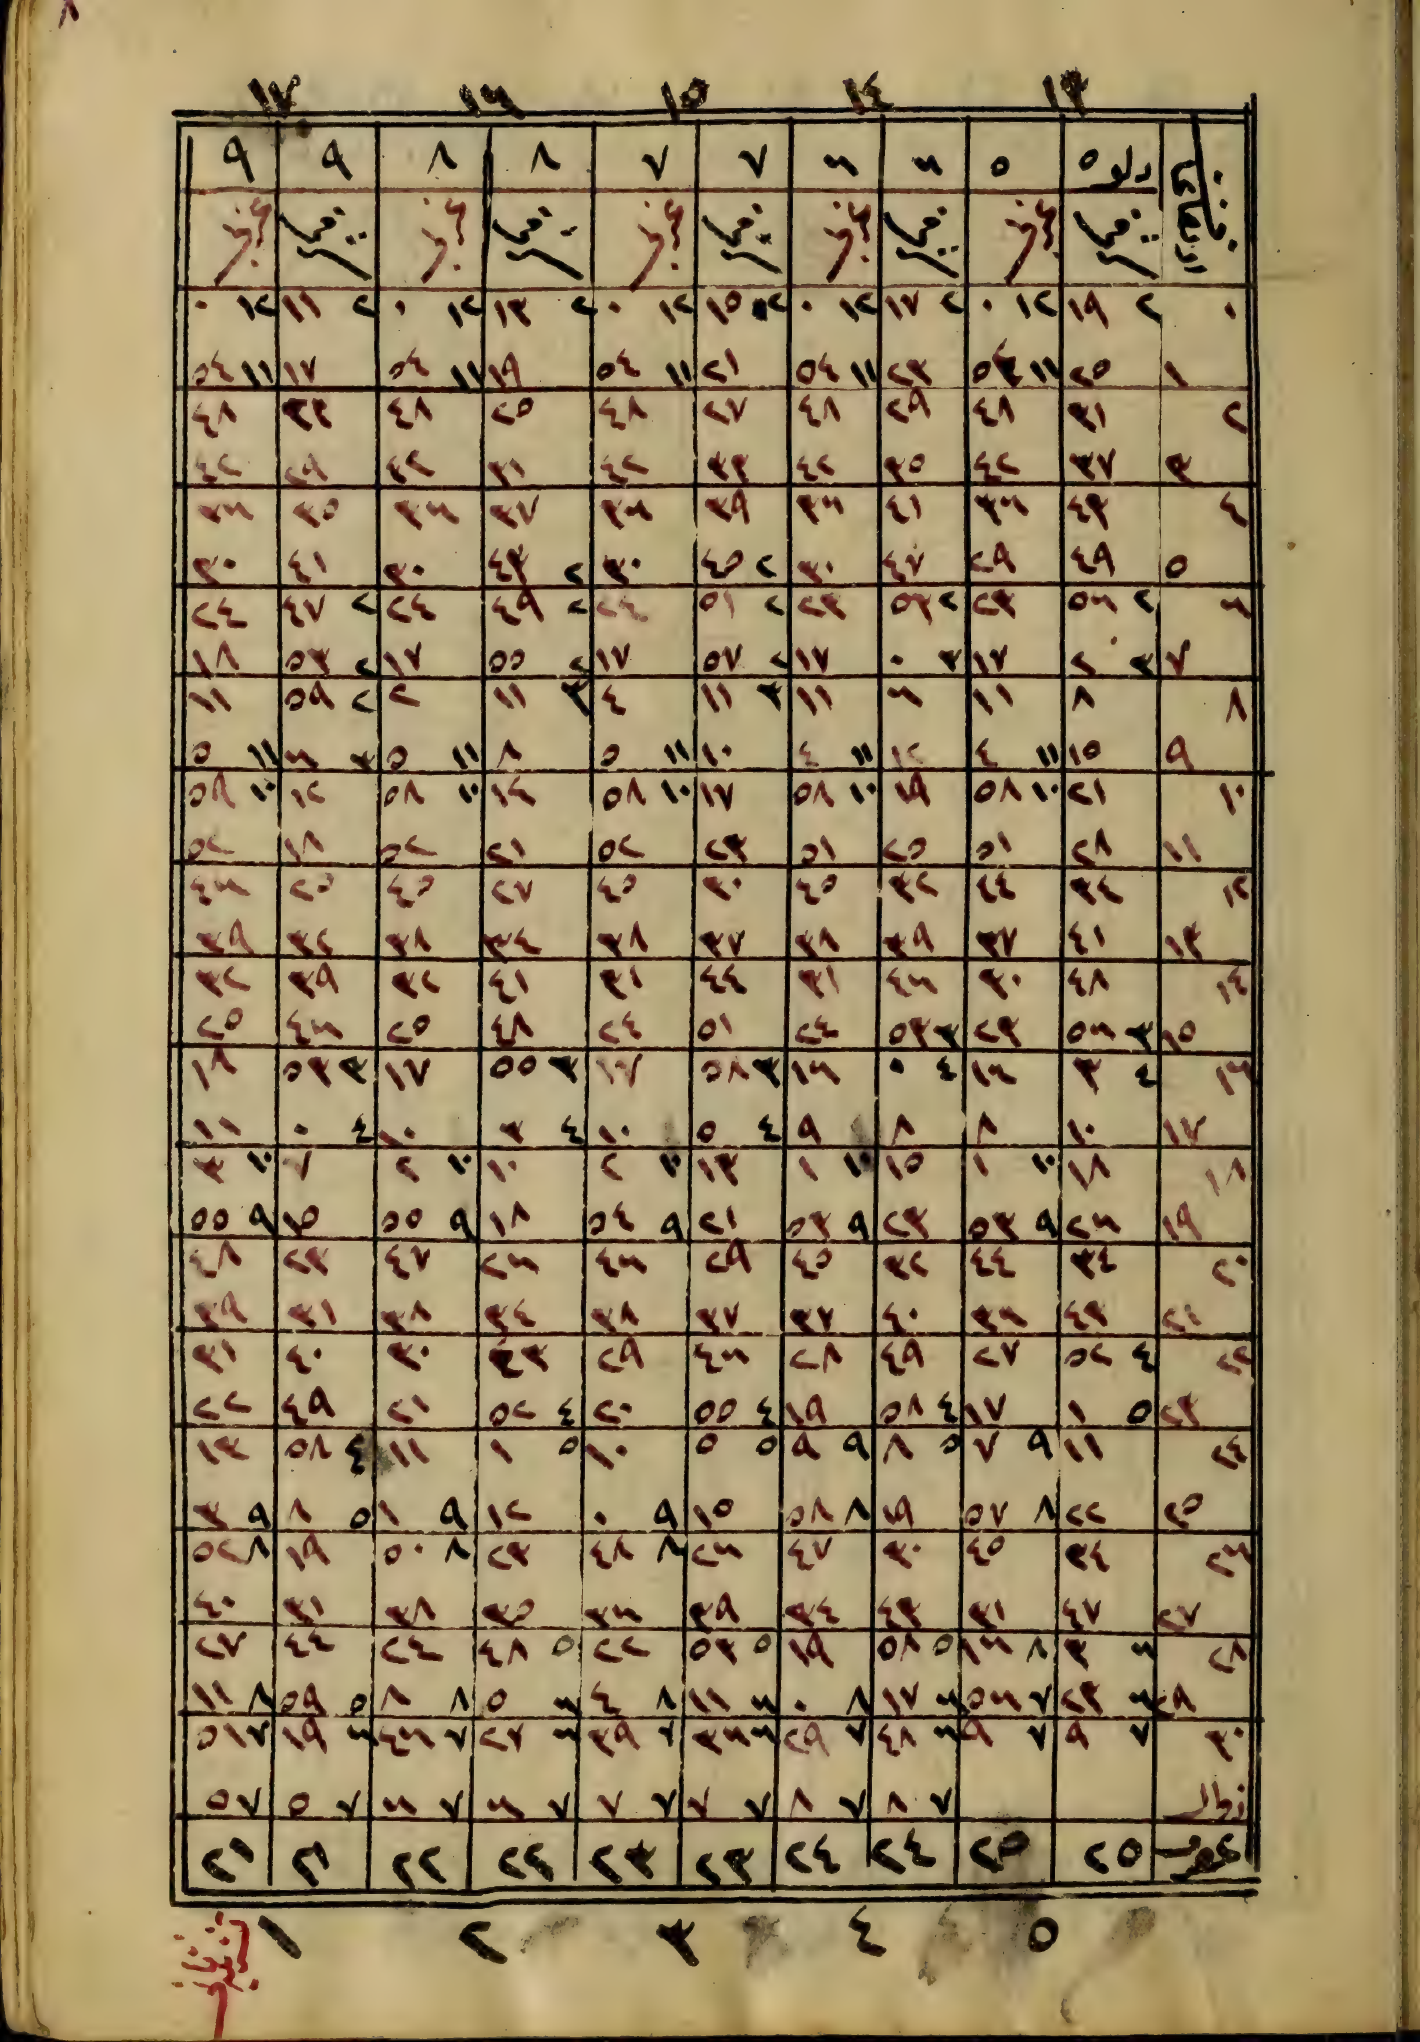 ١٣ ١٤ ١٥ ١٦ ١٧
دلو ٥ ٥ ٦ ٦ ٧ ٧ ٨ ٨ ٩ ٩
٠ ٢ ١٩ ١٢ ٠ ٢ ١٧ ١٢ ٠ ٢ ١٥ ١٢ ٠ ٢ ١٣ ١٢ ٠ ٢ ١١ ١٢ ٠
١ ٢٥ ١١ ٥٤ ٢٣ ١١ ٥٤ ٢١ ١١ ٥٤ ١٩ ١١ ٥٤ ١٧ ١١ ٥٤
٢ ٣١ ٤٨ ٢٩ ٤٨ ٢٧ ٤٨ ٢٥ ٤٨ ٢٣ ٤٨
٣ ٣٧ ٤٢ ٣٥ ٤٢ ٣٣ ٤٢ ٣١ ٤٢ ٢٩ ٤٢
٤ ٤٣ ٣٦ ٤١ ٣٦ ٣٩ ٣٦ ٣٧ ٣٦ ٣٥ ٣٦
٥ ٤٩ ٢٩ ٤٧ ٣٠ ٢ ٤٥ ٣٠ ٢ ٤٣ ٣٠ ٤١ ٣٠
٦ ٢ ٥٦ ٢٣ ٢ ٥٣ ٢٣ ٢ ٥١ ٢٤ ٢ ٤٩ ٢٤ ٢ ٤٧ ٢٤
٧ ٣ ٢ ١٧ ٣ ٠ ١٧ ٢ ٥٧ ١٧ ٢ ٥٥ ١٧ ٢ ٥٣ ١٨
٨ ٨ ١١ ٦ ١١ ٣ ٤ ١١ ٣ ٢ ١١ ٢ ٥٩ ١١
٩ ١٥ ١١ ٤ ١٢ ١١ ٤ ١٠ ١١ ٥ ٨ ١١ ٥ ٣ ٦ ١١ ٥
١٠ ٢١ ١٠ ٥٨ ١٩ ١٠ ٥٨ ١٧ ١٠ ٥٨ ١٤ ١٠ ٥٨ ١٢ ١٠ ٥٩
١١ ٢٨ ٥١ ٢٥ ٥١ ٢٣ ٥٢ ٢١ ٥٢ ١٨ ٥٢
١٢ ٣٤ ٤٤ ٣٢ ٤٥ ٣٠ ٤٥ ٢٧ ٤٥ ٢٥ ٤٦
١٣ ٤١ ٣٧ ٣٩ ٣٨ ٣٧ ٣٨ ٣٤ ٣٨ ٣٢ ٣٩
١٤ ٤٨ ٣٠ ٤٦ ٣١ ٤٤ ٣١ ٤١ ٣٢ ٣٩ ٣٢
١٥ ٣ ٥٦ ٢٣ ٣ ٥٣ ٢٤ ٥١ ٢٤ ٤٨ ٢٥ ٤٦ ٢٥
١٦ ٤ ٣ ١٦ ٤ ٠ ١٦ ٣ ٥٨ ١٧ ٣ ٥٥ ١٧ ٣ ٥٣ ١٨
١٧ ١٠ ٨ ٨ ٩ ٤ ٥ ١٠ ٤ ٣ ١٠ ٤ ٠ ١١
١٨ ١٨ ١٠ ١ ١٥ ١٠ ١ ١٣ ١٠ ٢ ١٠ ١٠ ٢ ٧ ١٠ ٣
١٩ ٢٦ ٩ ٥٣ ٢٣ ٩ ٥٣ ٢١ ٩ ٥٤ ١٨ ٩ ٥٥ ١٥ ٩ ٥٥
٢٠ ٣٤ ٤٤ ٣٢ ٤٥ ٢٩ ٤٦ ٢٦ ٤٧ ٢٣ ٤٨
٢١ ٤٣ ٣٦ ٤٠ ٣٧ ٣٧ ٣٨ ٣٤ ٣٨ ٣١ ٣٩
٢٢ ٤ ٥٢ ٢٧ ٤٩ ٢٨ ٤٦ ٢٩ ٤٣ ٣٠ ٤٠ ٣١
٢٣ ٥ ١ ١٧ ٤ ٥٨ ١٩ ٤ ٥٥ ٢٠ ٤ ٥٢ ٢١ ٤٩ ٢٢
٢٤ ١١ ٩ ٧ ٥ ٨ ٩ ٩ ٥ ٥ ١٠ ٥ ١ ١١ ٤ ٥٨ ١٣
٢٥ ٢٢ ٨ ٥٧ ١٩ ٨ ٥٨ ١٥ ٩ ٠ ١٢ ٩ ١ ٥ ٨ ٩ ٣
٢٦ ٣٤ ٤٥ ٣٠ ٤٧ ٢٦ ٨ ٤٨ ٢٣ ٨ ٥٠ ١٩ ٨ ٥٢
٢٧ ٤٧ ٣١ ٤٣ ٣٤ ٣٩ ٣٦ ٣٥ ٣٨ ٣١ ٤٠
٢٨ ٦ ٣ ٨ ١٦ ٥ ٥٨ ١٩ ٥ ٥٣ ٢٢ ٥ ٤٨ ٢٤ ٤٤ ٢٧
٢٩ ٦ ٢٣ ٧ ٥٦ ٦ ١٧ ٨ ٠ ٦ ١١ ٨ ٤ ٦ ٥ ٨ ٨ ٥ ٥٩ ٨ ١١
٣٠ ٧ ٩ ٧ ٩ ٦ ٤٨ ٧ ٢٩ ٦ ٣٦ ٧ ٣٩ ٦ ٢٧ ٧ ٤٦ ٦ ١٩ ٧ ٥١
زوال ٧ ٨ ٧ ٨ ٧ ٧ ٧ ٧ ٧ ٦ ٧ ٦ ٧ ٥ ٧ ٥
٢٥ ٢٥ ٢٤ ٢٤ ٢٣ ٢٣ ٢٢ ٢٢ ٢١ ٢١
٥ ٤ ٣ ٢ ١